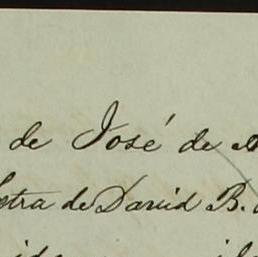 de José de
letra de David B.